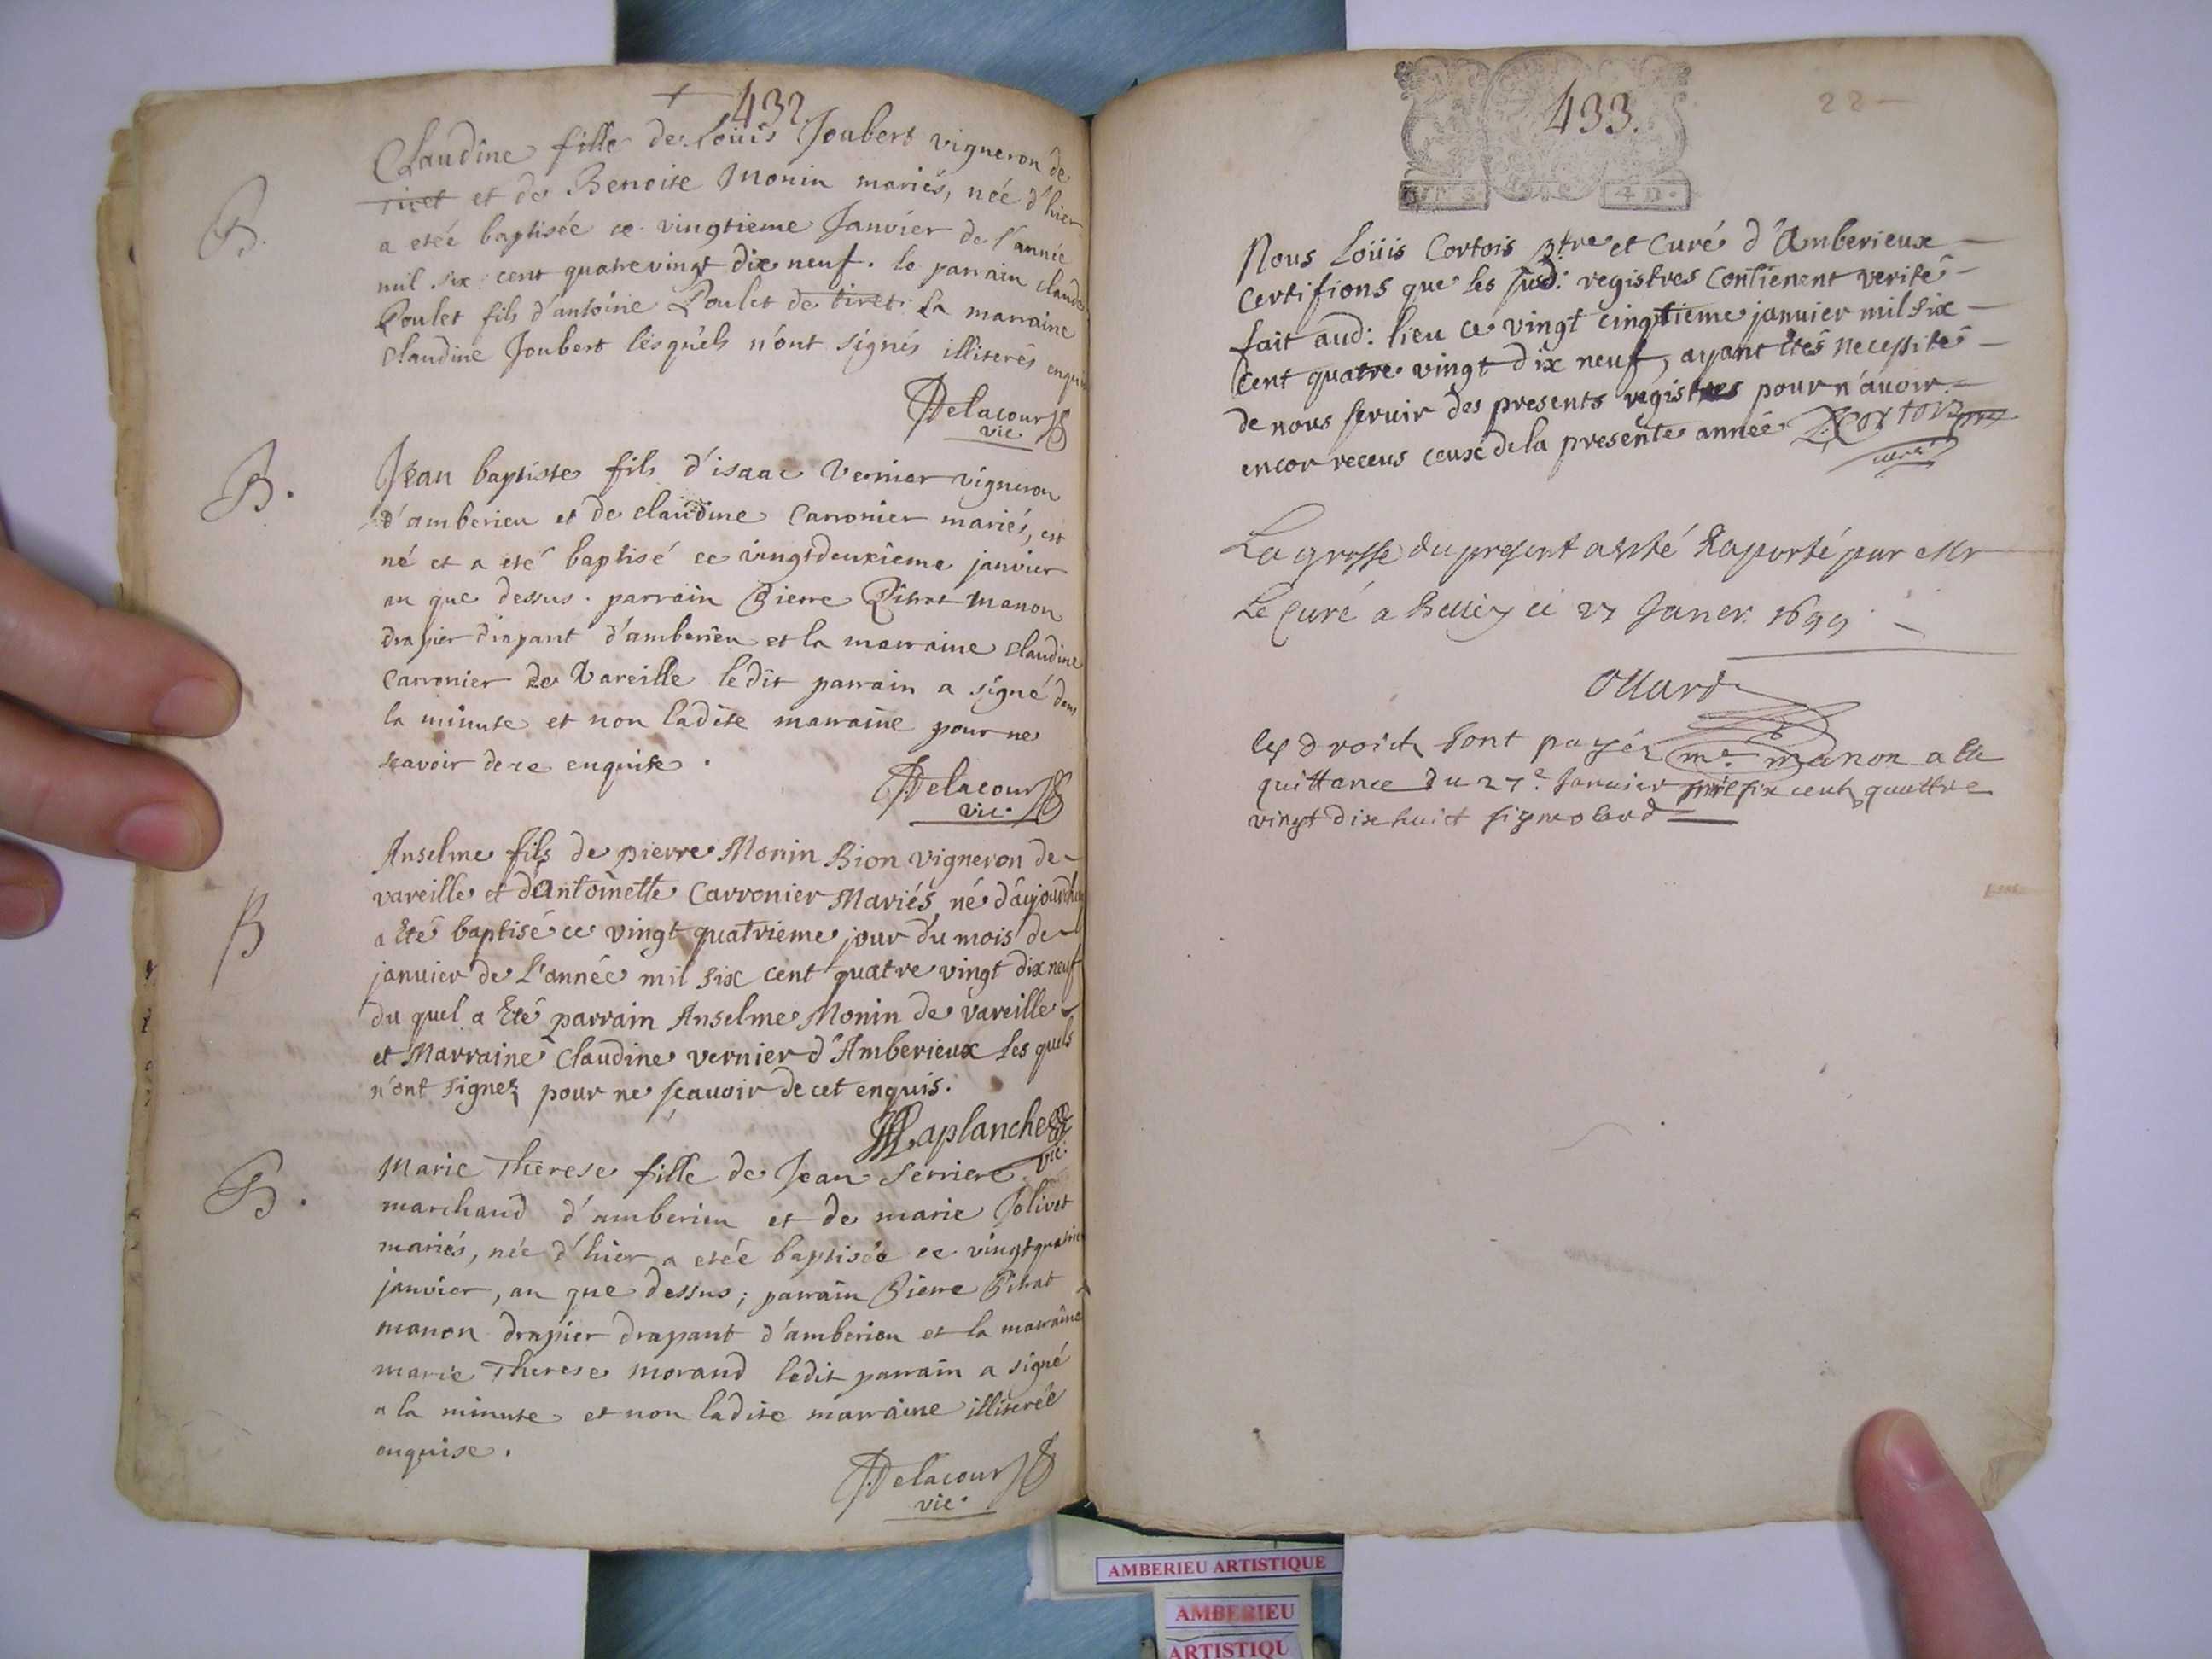 432.
Claudine fille de Loüis Joubert vigneron de
tiret et de Benoite Monin mariés, née d'hier
a etée baptisée ce vingtieme Janvier de l'année
mil six cent quatrevingt dix neuf. le parrain claude
Poulet fils d'antoine Poulet de tiret. La marraine
Claudine Joubert lesquels n'ont signés illiterés enquis
Delacour
vic.
B.
Jean baptiste fils d'isaac Vernier vigneron
d'amberieu et de claudine Carronier mariés, est
né et a eté baptisé ce vingtdeuxieme janvier
an que dessus. parrain Pierre Manon
drapier drapant d'amberieu et la marraine claudine
Carronier de Vareille ledit parrain a signé dans
la minute et non ladite marraine pour ne
scavoir de ce enquise.
Delacour
vic.
B.
Anselme fils de pierre Monin Bion vigneron de
vareille et d'Antoinette Carronier Mariés, né d'aujourdhuy
a Eté baptisé ce vingt quatrieme jour du mois de
januier de L'année mil six cent quatre vingt dix neuf
du quel a Eté parrain Anselme Monin de vareille
et Marraine Claudine vernier d'Amberieux les quels
n'ont signez pour ne sçauoir de cet enquis.
Laplanche
vic.
B
Marie Therese fille de Jean Serriere
marchand d'amberieu et de marie Jolivet
mariés, née d'hier a etée baptisée ce vingtquatrie
janvier, an que dessus; parrain Pierre
manon drapier drapant d'amberieu et la marraine
marie Therese morand ledit parrain a signé
a la minute et non ladite marraine illiterée
enquise.
Delacour
vic.
B.
433.
22
4 D.
Nous Loüis Cortois ptre et Curé d'Amberieux
Certifions que les susd: registres Contienent verité
fait aud: lieu ce vingt cinqtieme januier mil six
Cent quatre vingt dix neuf, ayant étés necessité
de nous seruir des presents registres pour n'auoir
encor receus ceux de la presente année Cortois
curé
La grosse du present a esté Raporté par Mr
Le Curé a Belley ce 27 Janer. 1699
les droicts sont payés mr. manon a la
quittance du 27e Januier mil six cents quattre
vingt dix huict
AMBERIEU ARTISTIQUE
AMBERIEU
ARTISTIQU